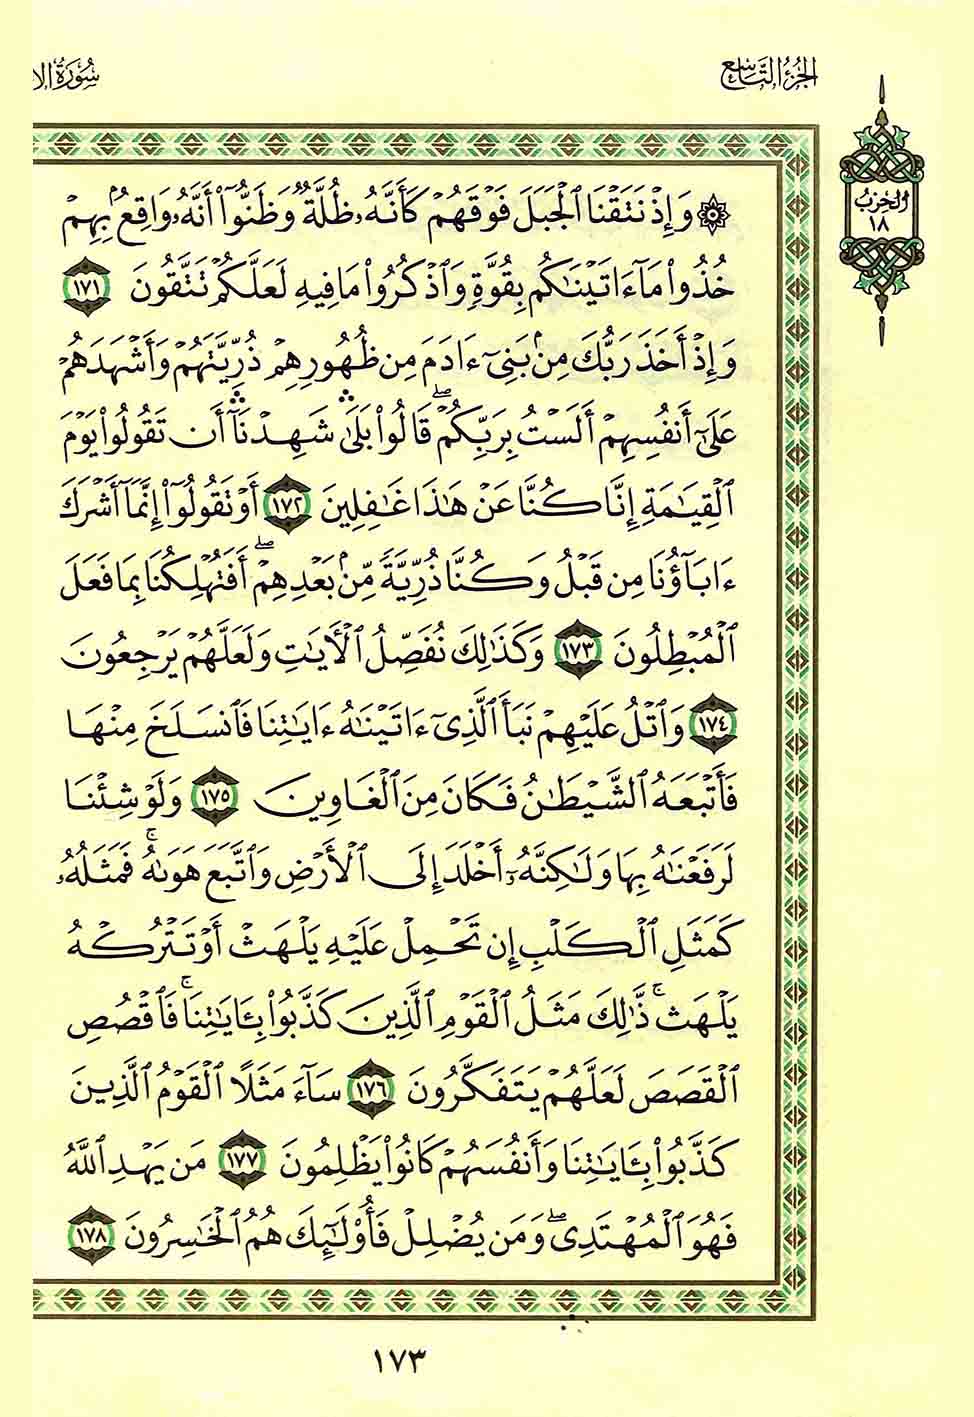 الجزء التاسع
سورة الا
الحزب
١٨
۞ وَإِذْ نَتَقْنَا ٱلْجَبَلَ فَوْقَهُمْ كَأَنَّهُۥ ظُلَّةٌ وَظَنُّوٓا۟ أَنَّهُۥ وَاقِعٌۢ بِهِمْ
خُذُوا۟ مَآ ءَاتَيْنَٰكُم بِقُوَّةٍ وَٱذْكُرُوا۟ مَا فِيهِ لَعَلَّكُمْ تَتَّقُونَ ١٧١
وَإِذْ أَخَذَ رَبُّكَ مِنۢ بَنِىٓ ءَادَمَ مِن ظُهُورِهِمْ ذُرِّيَّتَهُمْ وَأَشْهَدَهُمْ
عَلَىٰٓ أَنفُسِهِمْ أَلَسْتُ بِرَبِّكُمْ ۖ قَالُوا۟ بَلَىٰ ۛ شَهِدْنَآ ۛ أَن تَقُولُوا۟ يَوْمَ
ٱلْقِيَٰمَةِ إِنَّا كُنَّا عَنْ هَٰذَا غَٰفِلِينَ ١٧٢ أَوْ تَقُولُوٓا۟ إِنَّمَآ أَشْرَكَ
ءَابَآؤُنَا مِن قَبْلُ وَكُنَّا ذُرِّيَّةً مِّنۢ بَعْدِهِمْ ۖ أَفَتُهْلِكُنَا بِمَا فَعَلَ
ٱلْمُبْطِلُونَ ١٧٣ وَكَذَٰلِكَ نُفَصِّلُ ٱلْءَايَٰتِ وَلَعَلَّهُمْ يَرْجِعُونَ
١٧٤ وَٱتْلُ عَلَيْهِمْ نَبَأَ ٱلَّذِىٓ ءَاتَيْنَٰهُ ءَايَٰتِنَا فَٱنسَلَخَ مِنْهَا
فَأَتْبَعَهُ ٱلشَّيْطَٰنُ فَكَانَ مِنَ ٱلْغَاوِينَ ١٧٥ وَلَوْ شِئْنَا
لَرَفَعْنَٰهُ بِهَا وَلَٰكِنَّهُۥٓ أَخْلَدَ إِلَى ٱلْأَرْضِ وَٱتَّبَعَ هَوَىٰهُ ۚ فَمَثَلُهُۥ
كَمَثَلِ ٱلْكَلْبِ إِن تَحْمِلْ عَلَيْهِ يَلْهَثْ أَوْ تَتْرُكْهُ
يَلْهَث ۚ ذَّٰلِكَ مَثَلُ ٱلْقَوْمِ ٱلَّذِينَ كَذَّبُوا۟ بِـَٔايَٰتِنَا ۚ فَٱقْصُصِ
ٱلْقَصَصَ لَعَلَّهُمْ يَتَفَكَّرُونَ ١٧٦ سَآءَ مَثَلًا ٱلْقَوْمُ ٱلَّذِينَ
كَذَّبُوا۟ بِـَٔايَٰتِنَا وَأَنفُسَهُمْ كَانُوا۟ يَظْلِمُونَ ١٧٧ مَن يَهْدِ ٱللَّهُ
فَهُوَ ٱلْمُهْتَدِى ۖ وَمَن يُضْلِلْ فَأُو۟لَٰٓئِكَ هُمُ ٱلْخَٰسِرُونَ ١٧٨
١٧٣